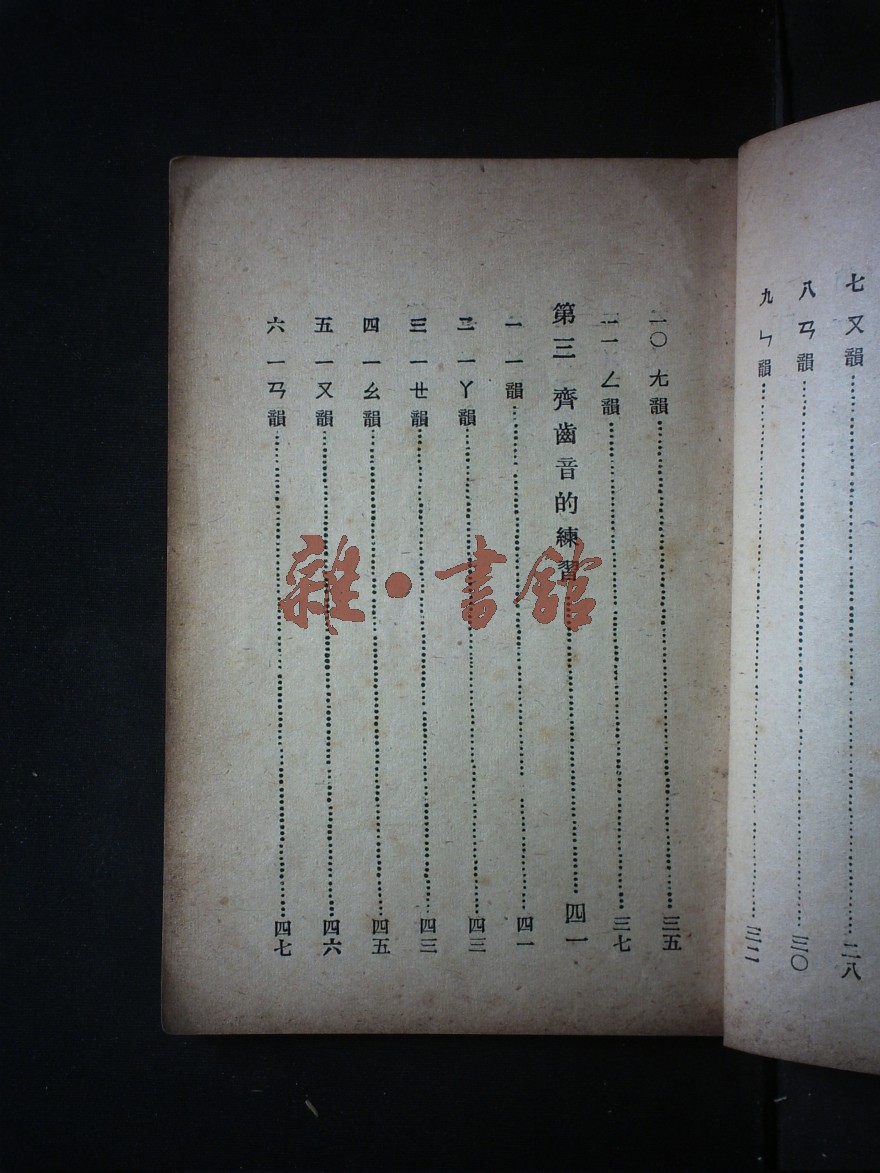 七 ㄡ韻……二八
八 ㄢ韻……三〇
九 ㄣ韻……三二
一〇 ㄤ韻……三五
一一 ㄥ韻……三七
第三 齊齒音的練習……四一
一 ㄧ韻……四一
二 ㄧㄚ韻……四三
三 ㄧㄝ韻……四三
四 ㄧㄠ韻……四五
五 ㄧㄡ韻……四六
六 ㄧㄢ韻……四七
雜·書館